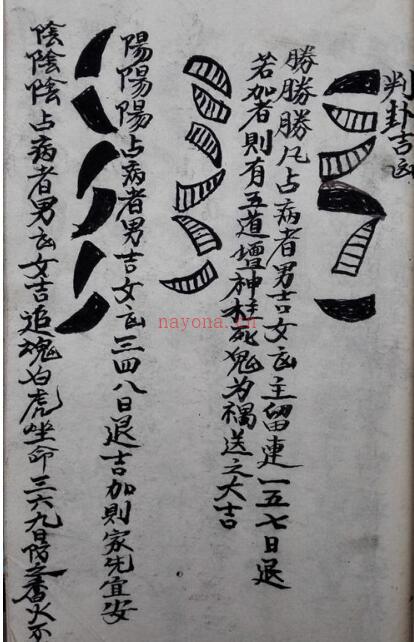 判卦吉凶
勝勝勝凡占病者男吉女凶主留連一五七日退
若加者則有五道壇神枉死鬼为禍送之大吉
陽陽陽占病者男吉女凶三四八日退吉加則家先宜安
陰陰陰占病者男凶女吉追魂白虎坐命三六九日防之香火不
nayona.cn